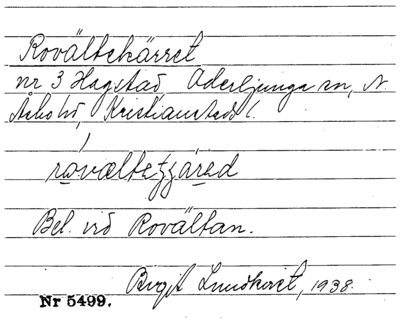 Rovältekärret
nr 3 Hagstad, Oderljunga sn, N.
Åsbo hd, Kristianstads l.
rovæltetʃærəd
Bel. vid Rovältan.
Birgit Lundkvist, 1938.
Nr 5499.